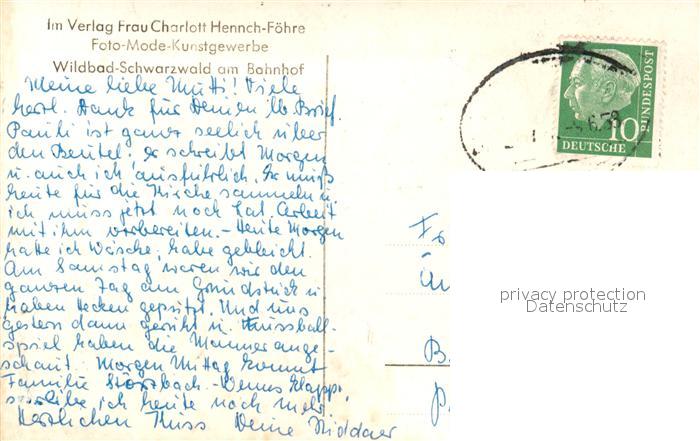 Im Verlag Frau Charlott Hennch-Föhre
Foto-Mode-Kunstgewerbe
Wildbad-Schwarzwald am Bahnhof
Meine liebe Mutti! Viele
herzl. Dank für Deinen lb. Brief.
Pauli ist ganz seelich über
den Beutel, er schreibt Morgen
u. auch ich ausführlich. Er muß
heute für die Kirche sammeln u.
ich muss jetzt noch Lat. Arbeit
mit ihm vorbereiten. - Heute Morgen
hatte ich Wäsche, habe gebleicht.
Am Samstag waren wir den
ganzen Tag am Grundstück u.
haben Hecken geputzt. Und uns
gestern dann geruht u. Fussball-
spiel haben die Männer ange-
schaut. Morgen Mittag kommt
Familie - Wenns klappt,
schreibe ich heute noch mehr
Herzlichen Kuss Deine
10
DEUTSCHE
BUNDESPOST
privacy protection
Datenschutz